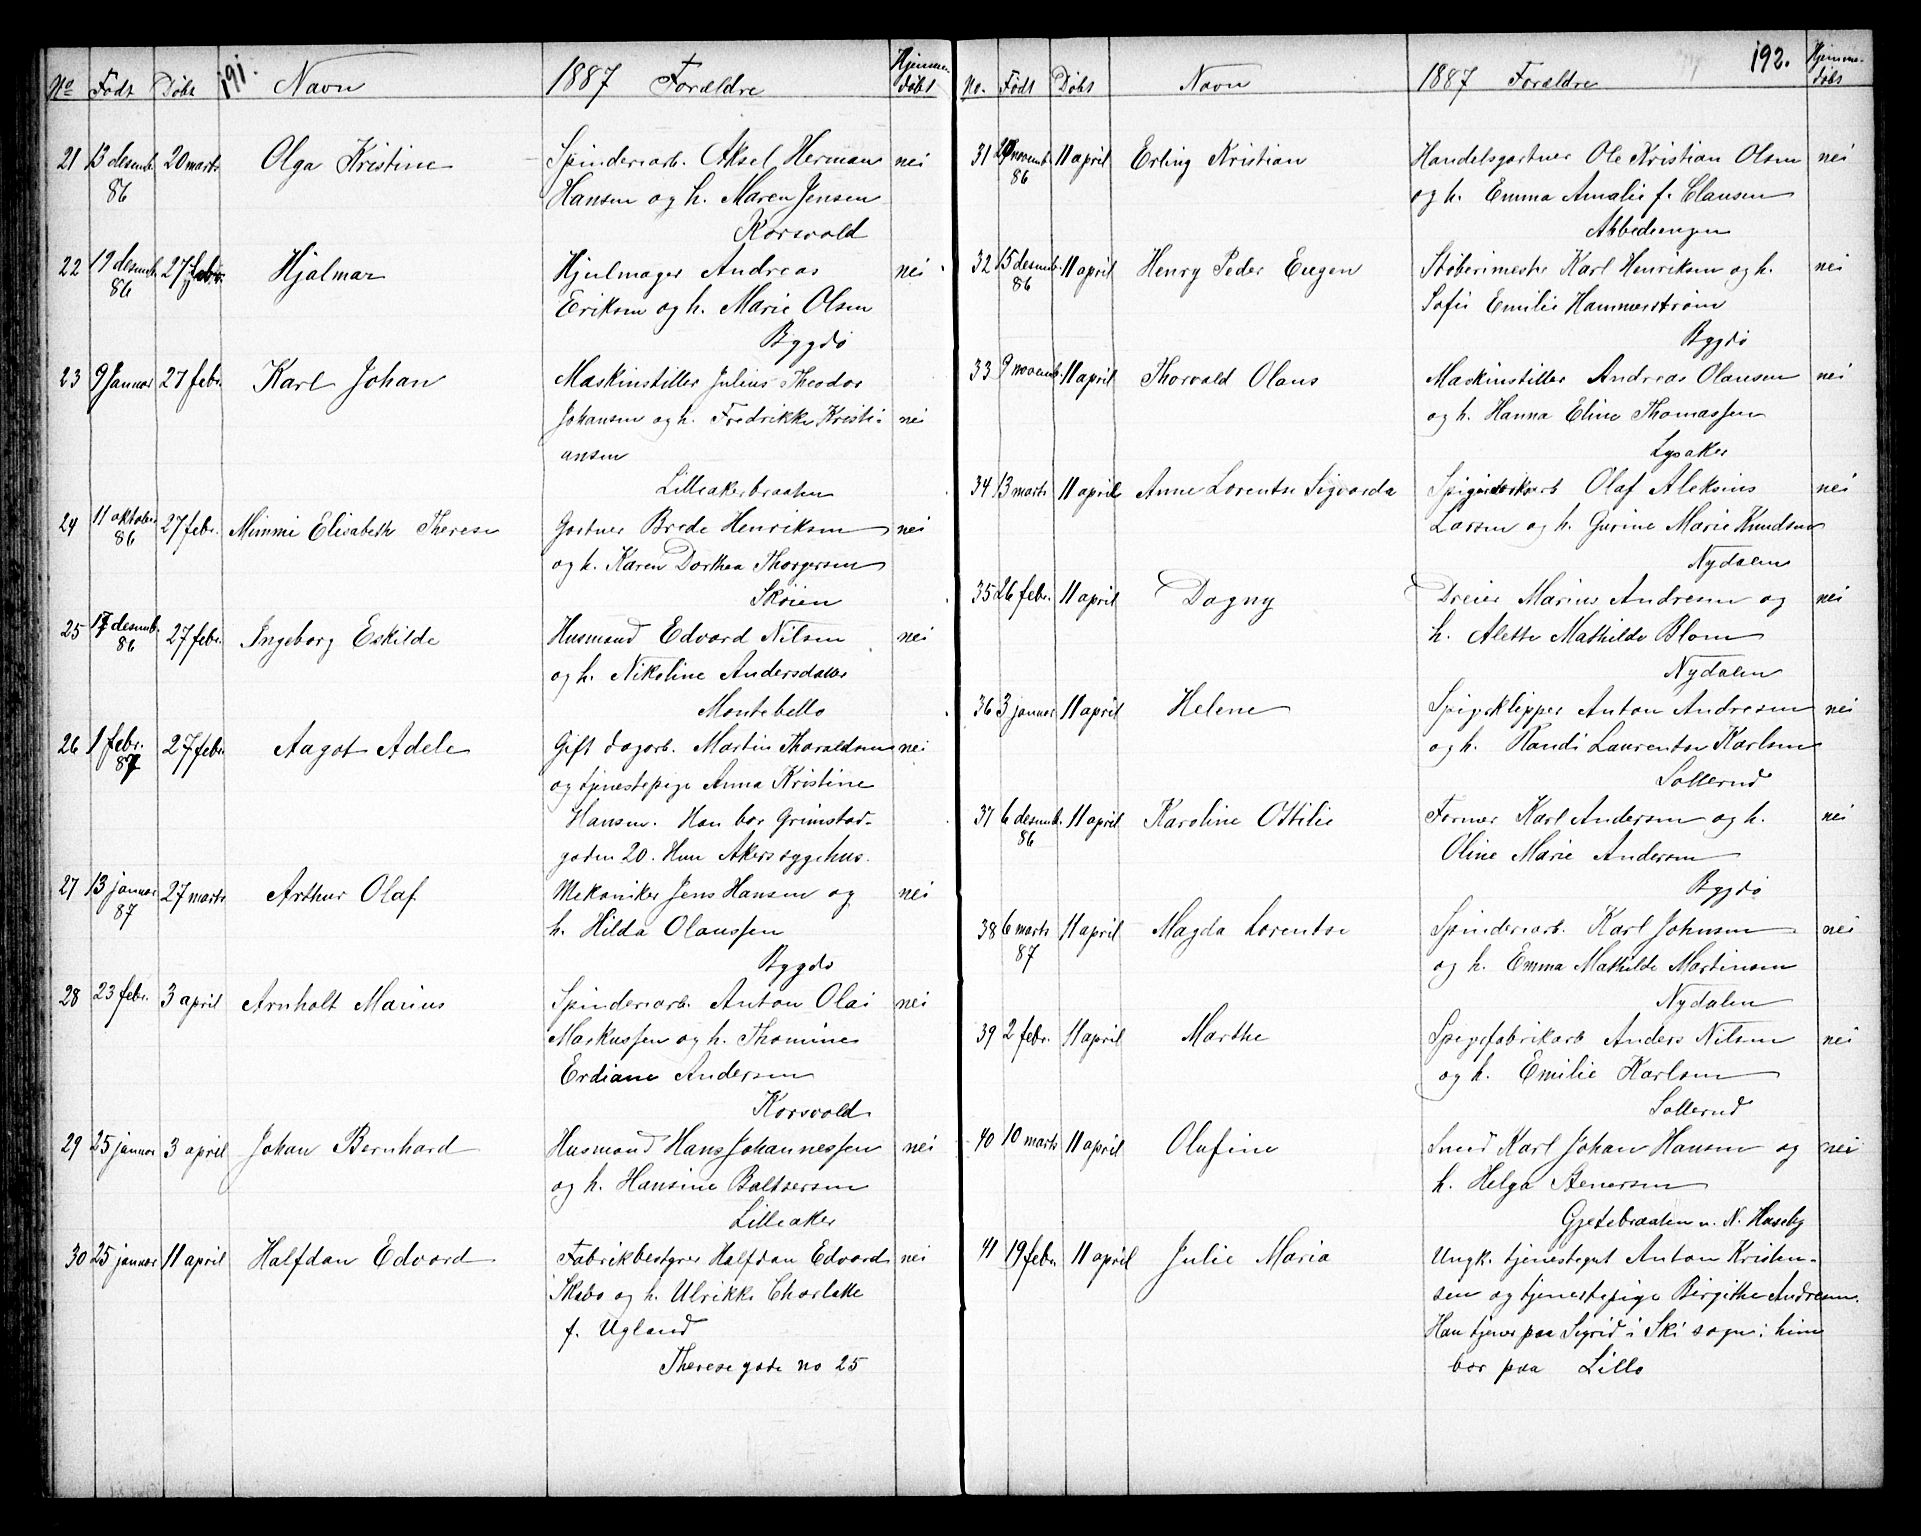 191.
No Født Døbt Navn 1887 Forældre Hjemmedøbt
21 13 desemb. 86 20 marts Olga Kristine Spinderiarb. Aksel Herman nei
Hansen og h. Maren Jensen
Korsvold
22 19 desemb. 86 27 febr. Hjalmar Hjulmager Andreas nei
Eriksen og h. Marie Olsen
Bygdø
23 9 Januar 27 febr. Karl Johan Maskinstiller Julius Theodor
Johansen og h. Fredrikke Kristi- nei
ansen
Lilleakerbraaten
24 11 oktober 86 27 febr. Mimmi Elisabeth Therese Gartner Brede Henriksen nei
og h. Karen Dorthea Thorgersen
Skøien
25 17 desemb. 86 27 febr. Ingeborg Eskilde Husmand Edvard Nilsen nei
og h. Nikoline Andersdatter
Montebello
26 1 febr. 87 27 febr. Aagot Adele Gift dagarb. Martin Tharaldsen nei
og tjenestepige Anna Kristine
Hansen. Han bor Grimstad-
gaden 20. Hun Akers sygehus.
27 13 januar 87 27 marts Arthur Olaf Mekaniker Jens Hansen og nei
h. Hilda Olaussen
Bygdø
28 23 febr. 3 april Arnholt Marius Spinderiarb. Anton Olai nei
Markussen og h. Thomine
Erdiane Andersen
Korsvold
29 25 januar 3 april Johan Bernhard Husmand Hans Johannessen nei
og h. Hansine Baltsersen
Lilleaker
30 25 januar 11 april Halfdan Edvard Fabrikbestyrer Halfdan Edvard nei
Skabo og h. Ulrikke Charlotte
f. Ugland
Therese gade no 25
192.
No. Født Døbt Navn 1887 Forældre Hjemmedøbt
31 novemb. 86 11 april Erling Kristian Handelsgartner Ole Kristian Olsen nei
og h. Emma Amalie f. Clausen
Abbediengen
32 15 desemb. 86 11 april Henry Peder Eugen Støberimester Karl Henriksen og h. nei
Sofie Emilie Hammerstrøm
Bygdø
33 9 novemb. 11 april Thorvald Olaus Maskinstiller Andreas Olausen nei
og h. Hanna Eline Thomassen
Lysaker
34 13 marts 11 april Anne Lorentse Sigvarda Olaf Aleksius nei
Larsen og h. Gurine Marie Knudsen
Nydalen
35 26 febr. 11 april Dagny Dreier Marius Andresen og nei
h. Alette Mathilde Blom
Nydalen
36 3 januar 11 april Helene Spigerklipper Anton Andresen nei
og h. Randi Laurentse Karlsen
Sollerud
37 6 desemb. 86 11 april Karoline Ottilie Former Karl Andersen og h. nei
Oline Marie Andersen
Bygdø
38 6 marts 87 11 april Magda Lorentse Spinderiarb. Karl Johnsen nei
og h. Emma Mathilde Martinsen
Nydalen
39 2 febr. 11 april Marthe Spigerfabrikarb Anders Nilsen nei
og h. Emilie Karlsen
Sollerud
40 10 marts 11 april Olufine Smed Karl Johan Hansen og nei
h. Helga Stenersen
Gjetebraaten u. N. Huseby
41 19 febr. 11 april Julie Maria Ungk. tjenestegut Anton Kristen-
sen og tjenestepige Birgithe Andresen.
Han tjener paa Sigrid i Ski sogn: hun
bor paa Lillo